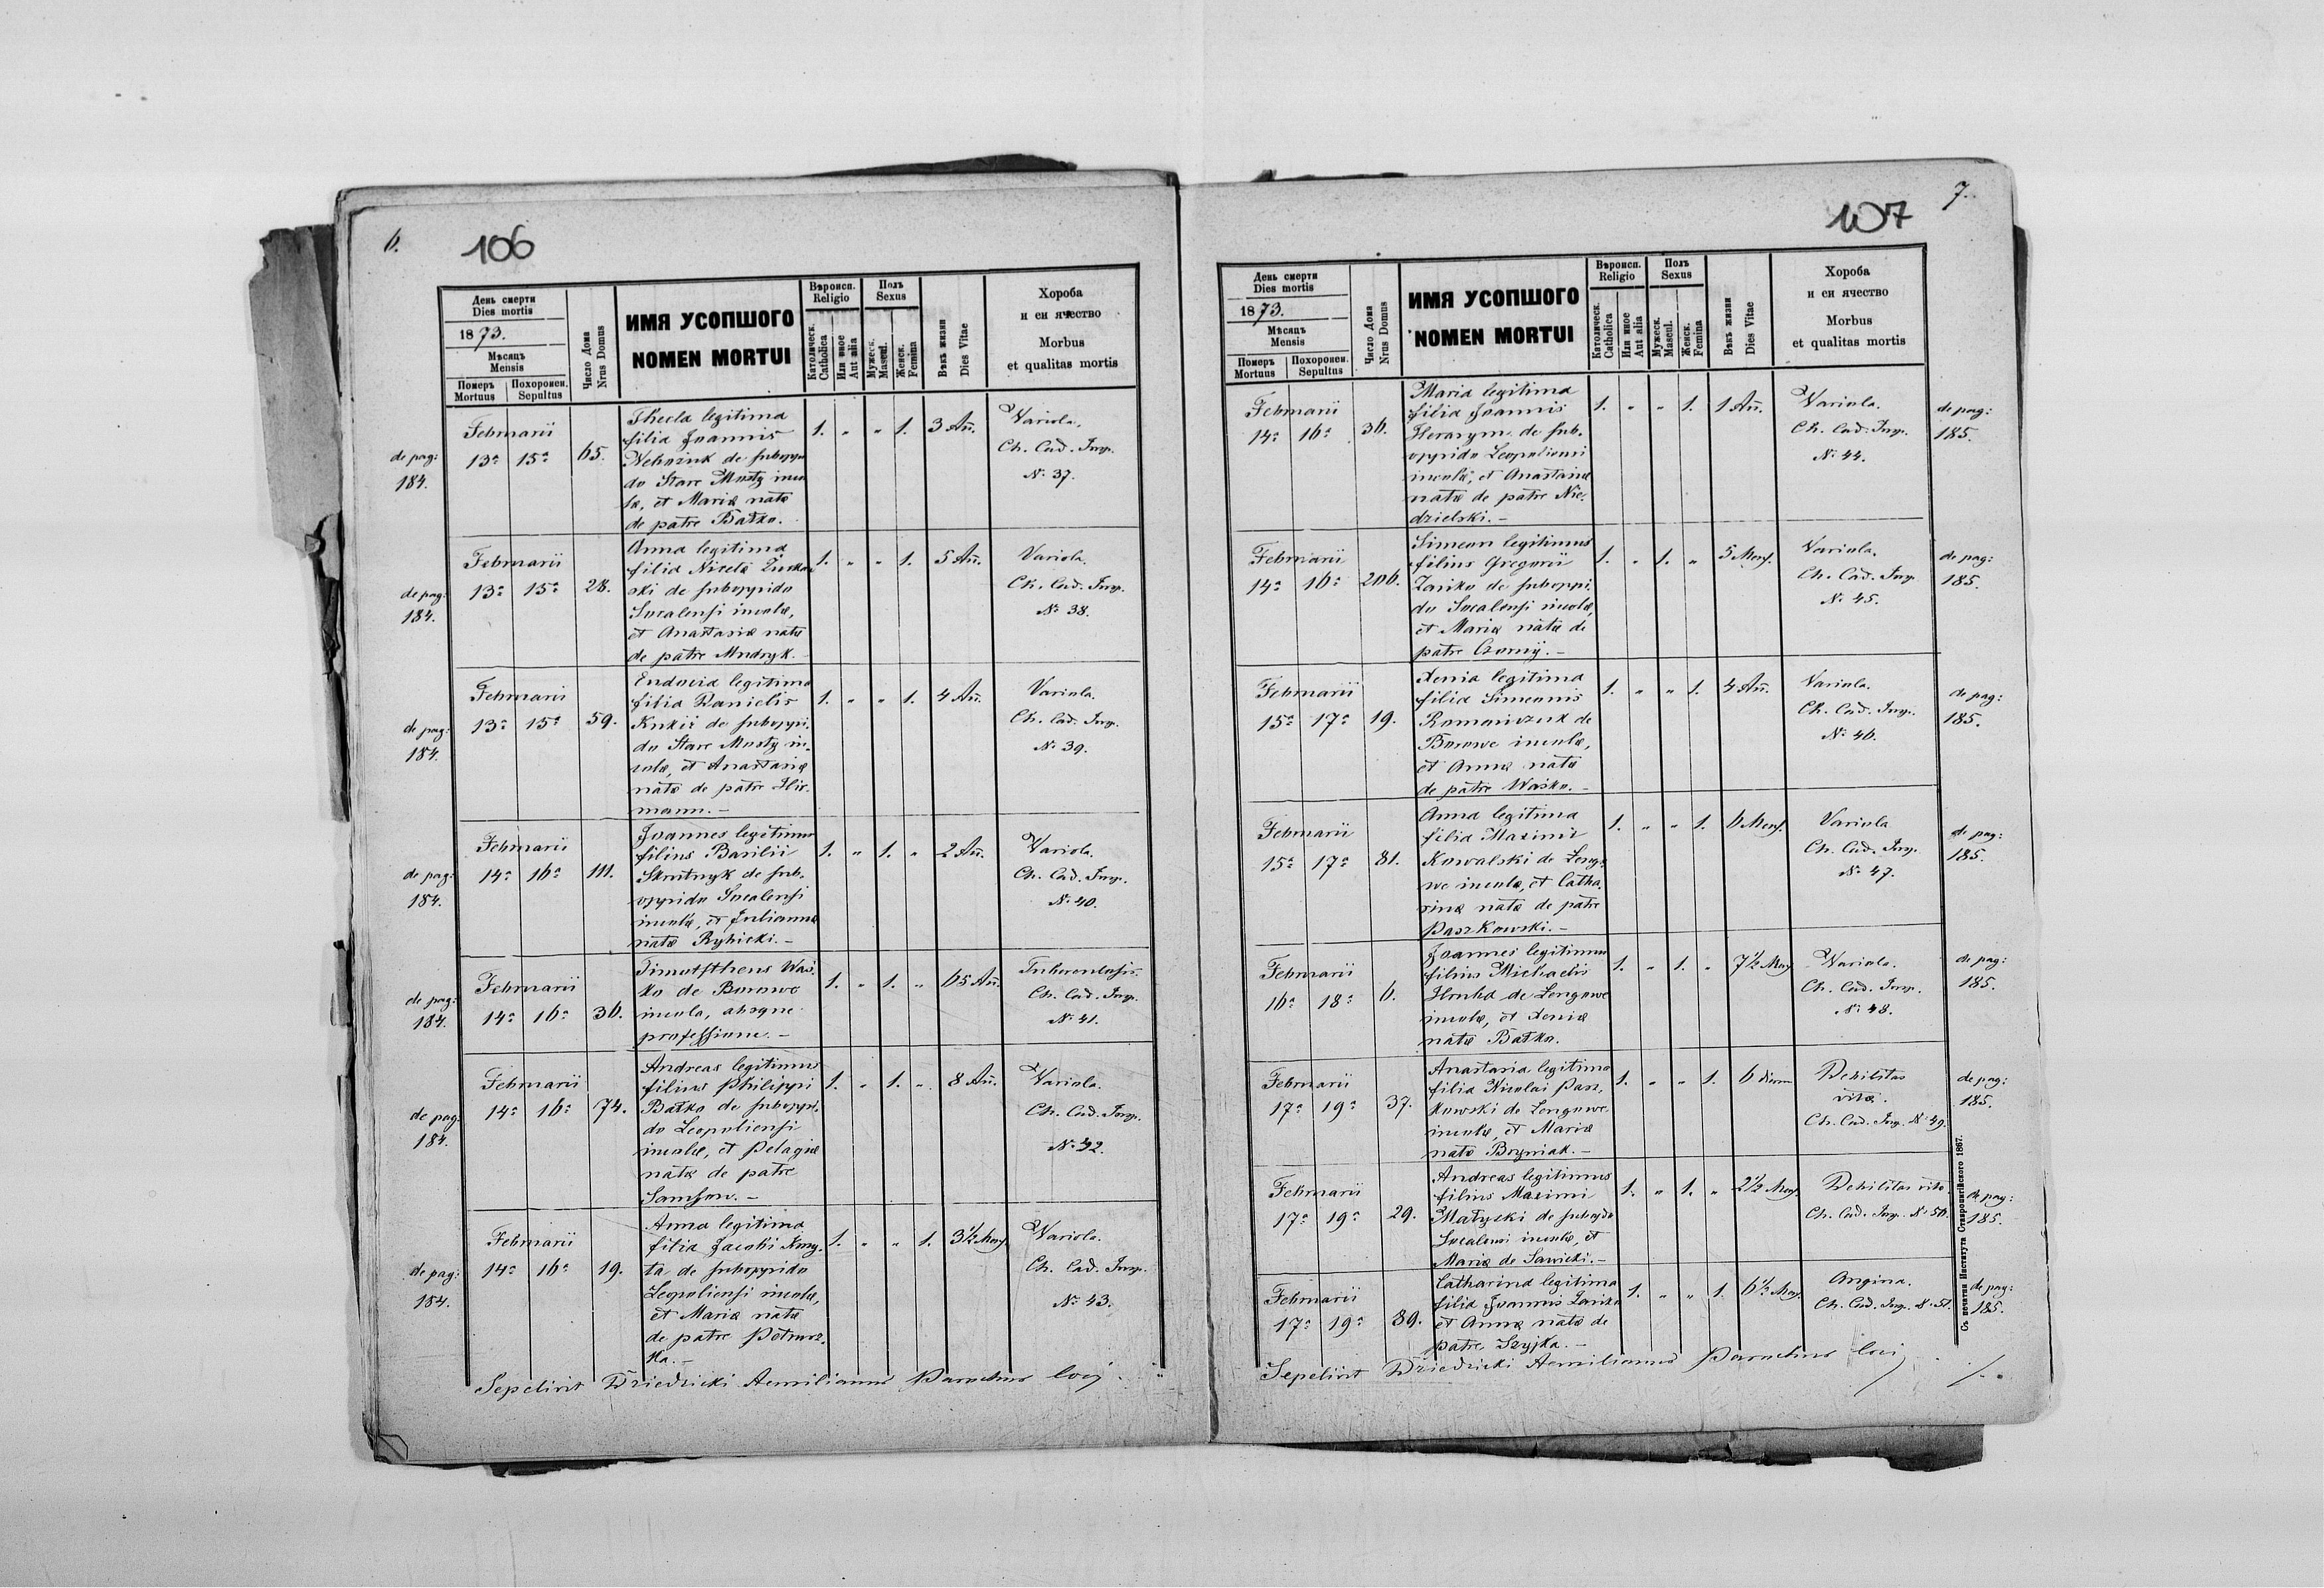 6.
106
День смерти
Dies mortis
1873.
Мѣсяць
Mensis
Померъ Mortuus
Похоронен. Sepultus
Число Дома
Nrus Domus
ИМЯ УСОПШОГО
NOMEN MORTUI
Вѣроисп.
Religio
Католическ.
Catholica
Или иное
Aut alia
Полъ
Sexus
Мужеск.
Mascul.
Женск.
Femina
Вѣкъ жизни
Dies Vitae
Хороба
и еи ячество
Morbus
et qualitas mortis
de pag: 184.
Februarii
13a 15a 65.
Thecla legitima
filia Joannis
de suboppi
do Stare Mosty inco
lae, et Mariae natae
de patre Bałko.
1. " " 1. 3 An̄.
Variola.
Ch. Cad. Insp.
N: 37.
de pag: 184.
Februarii
13a 15a 28.
Anna legitima
filia Nicetae
ski de suboppido
Socalensi incolae,
et Anastasiae natae
de patre Mudryk.
1. " " 1. 5 An̄.
Variola.
Ch. Cad. Insp.
N: 38.
de pag: 184.
Februarii
13a 15a 59.
Eudocia legitima
filia Danielis
Kukil de suboppi-
do Stare Mosty in-
colae, et Anastasiae
natae de patre Hir-
mann.-
1. " " 1. 4 An̄.
Variola.
Ch. Cad. Insp.
N: 39.
de pag: 184.
Februarii
14a 16a 111.
Joannes legitimus
filius Basilii
Skrutnyk de sub-
oppido Socalensi
incolae, et Julianna
natae Ryhicki.-
1. " 1. " 2 An̄.
Variola.
Ch. Cad. Insp.
N: 40.
de pag: 184.
Februarii
14a 16a 36.
Timotftheus Waś-
ko de Borowe
incola, absque
professione.-
1. " 1. " 65 An̄.
Tuberculosis.
Ch. Cad. Insp.
N: 41.
de pag: 184.
Februarii
14a 16a 74.
Andreas legitimus
filius Philippi
Bałko de suboppi-
do Leopoliensi
incolae, et Pelagiae
natae de patre
Samson.-
1. " 1. " 8 An̄.
Variola.
Ch. Cad. Insp.
N: 42.
de pag: 184.
Februarii
14a 16a 19.
Anna legitima
filia Jacobi Kmy-
ta de suboppido
Leopoliensi incolae,
et Mariae natae
de patre Petrusz-
ka.-
1. " " 1. 3½ Mens.
Variola.
Ch. Cad. Insp.
N: 43.
Sepelivit Dziedzicki Aemilianus Parochus loci
7.
107
День смерти
Dies mortis
1873.
Мѣсяць
Mensis
Померъ Mortuus
Похоронен. Sepultus
Число Дома
Nrus Domus
ИМЯ УСОПШОГО
NOMEN MORTUI
Вѣроисп.
Religio
Католическ.
Catholica
Или иное
Aut alia
Полъ
Sexus
Мужеск.
Mascul.
Женск.
Femina
Вѣкъ жизни
Dies Vitae
Хороба
и еи ячество
Morbus
et qualitas mortis
Februarii
14a 16a 36.
Maria legitima
filia Joannis
Herasym de sub-
oppido Leopoliensi
incolae, et Anastasiae
natae de patre Nie-
dzielski.-
1. " " 1. 1 An̄.
Variola.
Ch. Cad. Insp.
N: 44.
de pag: 185.
Februarii
14a 16a 206.
Simeon legitimus
filius Gregorii
Zańko de suboppi-
do Socalensi incolae,
et Mariae natae de
patre Czornij.-
1. " 1. " 5 Mens.
Variola.
Ch. Cad. Insp.
N: 45.
de pag: 185.
Februarii
15a 17a 19.
Xenia legitima
filia Simeonis
Romańczuk de
Borowe incolae,
et Annae natae
de patre Waśko.-
1. " " 1. 4 An̄.
Variola.
Ch. Cad. Insp.
N: 46.
de pag: 185.
Februarii
15a 17a 81.
Anna legitima
filia Maximi
Kowalski de Zengo-
we incolae, et Catha-
rinae natae de patre
Paszkowski.-
1. " " 1. 6 Mens.
Variola
Ch. Cad. Insp.
N: 47.
de pag: 185.
Februarii
16a 18a 6.
Joannes legitimus
filius Michaelis
Hruba de Zengowe
incolae, et Xeniae
natae Bałko.
1. " 1. " 7½ Mens
Variola.
Ch. Cad. Insp.
N: 48.
de pag: 185.
Februarii
17a 19a 37.
Anastasia legitima
filia Nicolai Pasz-
kowski de Zengowe
incolae, et Mariae
natae Bryniak.-
1. " " 1. 6 dierum
Debilitas
vitae.
Ch. Cad. Insp. N: 49.
de pag: 185.
Februarii
17a 19a 29.
Andreas legitimus
filius Maximi
Matyski de
Socalensi incolae, et
Mariae de Sawicki.-
1. " 1. " 2½ Mens.
Debilitas vitae
Ch. Cad. Insp. N: 50.
de pag: 185.
Februarii
17a 19a 89.
Catharina legitima
filia Joannis Zańko
et Annae natae de
patre Szyjka.-
1. " " 1. 6½ Mens.
Angina.
Ch. Cad. Insp. N: 51.
de pag: 185.
Съ печатни Института Ставропигійского 1867.
Sepelivit Dziedzicki Aemilianus Parochus loci